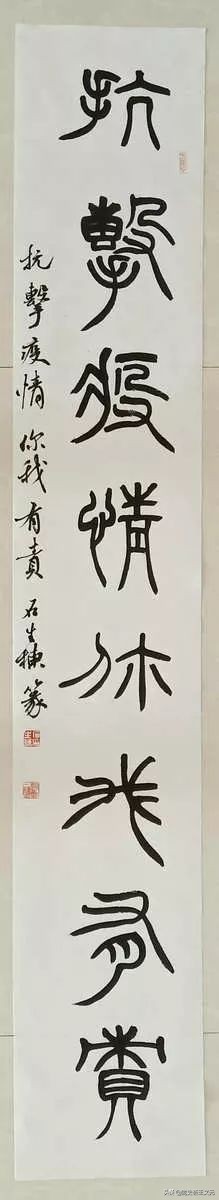 抗擊疫情你我有責
抗擊疫情你我有責 石生棟篆